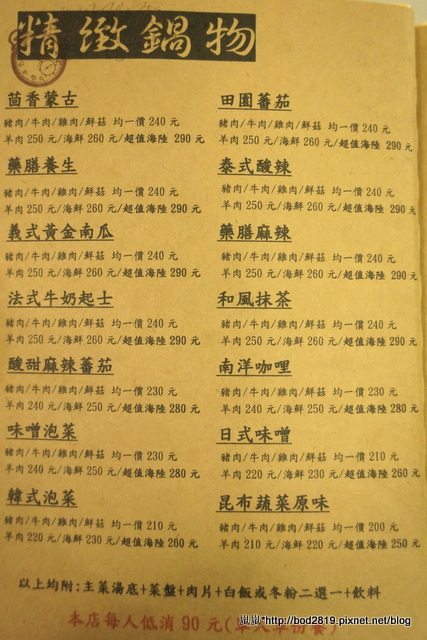 精緻鍋物
茴香蒙古
豬肉/牛肉/雞肉/鮮菇 均一價 240 元
羊肉 250 元/海鮮 260 元/超值海陸 290 元
藥膳養生
豬肉/牛肉/雞肉/鮮菇 均一價 240 元
羊肉 250 元/海鮮 260 元/超值海陸 290 元
義式黃金南瓜
豬肉/牛肉/雞肉/鮮菇 均一價 240 元
羊肉 250 元/海鮮 260 元/超值海陸 290 元
法式牛奶起士
豬肉/牛肉/雞肉/鮮菇 均一價 240 元
羊肉 250 元/海鮮 260 元/超值海陸 290 元
酸甜麻辣蕃茄
豬肉/牛肉/雞肉/鮮菇 均一價 230 元
羊肉 240 元/海鮮 250 元/超值海陸 280 元
味噌泡菜
豬肉/牛肉/雞肉/鮮菇 均一價 230 元
羊肉 240 元/海鮮 250 元/超值海陸 280 元
韓式泡菜
豬肉/牛肉/雞肉/鮮菇 均一價 210 元
羊肉 220 元/海鮮 230 元/超值海陸 260 元
田園蕃茄
豬肉/牛肉/雞肉/鮮菇 均一價 240 元
羊肉 250 元/海鮮 260 元/超值海陸 290 元
泰式酸辣
豬肉/牛肉/雞肉/鮮菇 均一價 240 元
羊肉 250 元/海鮮 260 元/超值海陸 290 元
藥膳麻辣
豬肉/牛肉/雞肉/鮮菇 均一價 240 元
羊肉 250 元/海鮮 260 元/超值海陸 290 元
和風抹茶
豬肉/牛肉/雞肉/鮮菇 均一價 240 元
羊肉 250 元/海鮮 260 元/超值海陸 290 元
南洋咖哩
豬肉/牛肉/雞肉/鮮菇 均一價 230 元
羊肉 240 元/海鮮 250 元/超值海陸 280 元
日式味噌
豬肉/牛肉/雞肉/鮮菇 均一價 210 元
羊肉 220 元/海鮮 230 元/超值海陸 260 元
昆布蔬菜原味
豬肉/牛肉/雞肉/鮮菇 均一價 200 元
羊肉 210 元/海鮮 220 元/超值海陸 250 元
以上均附:主菜湯底+菜盤+肉片+白飯或冬粉二選一+飲料
本店每人低消 90 元(
"http://bod2819.pixnet.net/blog